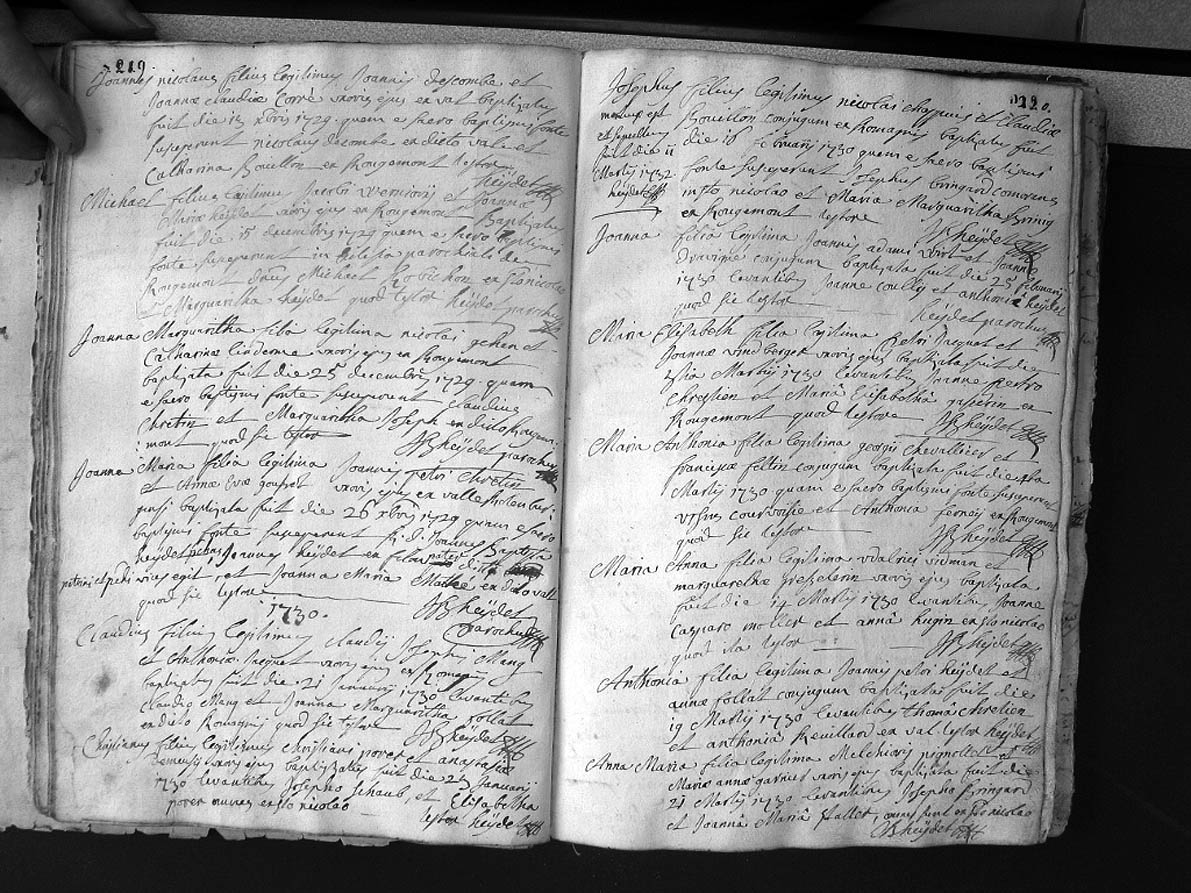 219
Joannes nicolaus filius legitimus Joannis descombe et
Joannæ claudiæ Corre uxoris ejus en val baptizatus
fuit die 13 xbris 1729 quem e sacro baptismi fonte
susceperunt nicolaus decombe en dicto vale et
Catharina Bouillon en Rougemont testor
heÿdet
Michael filius legitimus Jacobi et Joannæ
Mariæ heÿdet uxoris ejus en Rougemont Baptizatus
fuit die 15 decembris 1729 quem e sacro baptismi
fonte susceperunt in Eclesia parochiali de
Rougemont Michael Robichon en sto nicolao
et Marguaritha heÿdet quod testor heÿdet parochus
Joanna Marguaritha filia legitima nicolai gehen et
Catharinæ uxoris ejus en Rougemont
baptizata fuit die 25 decembris 1729 quam
e sacro baptismi fonte susceperunt Claudius
Chretin et Marguaritha Joseph en dicto Rouge
mont quod sic testor heÿdet parochus
Joanna Maria filia legitima Joannis petri chretin
et Annæ Evæ gousset uxoris ejus en valle
baptizata fuit die 26 xbris 1729 quem e sacro
baptismi fonte susceperunt Joannes Baptista
heÿdet Joannes heÿdet en
vices egit, et Joanna Maria Mathé en dicto vall
quod sic testor heÿdet
1730. parochus
Claudius filius legitimus claudij Josephi Mang
et Anthoniæ Jacquet uxoris ejus en Romagnij
baptizatus fuit die 21 Januarij 1730 levantibus
Claudio Mang et Joanna Marguaritha follat
en dicto Romagnij quod sic testor heÿdet
Christianus filius legitimus christiani porer et anastasiæ
uxoris ejus baptizatus fuit die 23 Januarij
1730 levantibus Josepho Schaub, et Elisabetha
porer omnes en sto nicolao
testor heÿdet
220.
Josephus filius legitimus nicolai chappuis et Claudiæ
Bouillon conjugum en Romagnij baptizatus fuit
die 16 februarij 1730 quem e sacro baptismi
fonte susceperunt Josephus bringard comorens
in sto nicolao et Maria Marguaritha
en Rougemont testor
heÿdet
mortuus est
et sepultus
fuit die 11
Martij 1732
heÿdet
Joanna filia legitima Joannis adami et Joannæ
conjugum baptizata fuit die 25 februarij
1730 levantibus Joanne et anthonia heÿdet
quod sic testor heÿdet parochus
Maria Elisabeth filia legitima petri Jacquat et
Joannæ windberger uxoris ejus baptizata fuit die
Martij 1730 levantibus Joanne petro
chrestien et Mariâ Elisabethâ gasperin en
Rougemont quod testor heÿdet
Maria Anthonia filia legitima georgii chevallier et
franciscæ feltin conjugum baptizata fuit die
Martij 1730 quam e sacro baptismi fonte susceperunt
ursus courvoisie et Anthonia en Rougemont
quod sic testor heÿdet
Maria Anna filia legitima udalrici vidman et
marguarethæ uxoris ejus baptizata
fuit die 14 Martij 1730 levantibus Joanne
Casparo moller et annâ hugin en sto nicolao
quod ita testor heÿdet
Anthonia filia legitima Joannis petri heÿdet et
annæ follat conjugum baptizata fuit die
19 Martij 1730 levantibus thomâ chretien
et anthoniâ Reuillard en val testor heÿdet
Anna Maria filia legitima Melchioris pignollet et
Mariæ annæ garnier uxoris ejus baptizata fuit die
21 Martij 1730 levantibus Josepho Bringard
et Joannâ Mariâ Hallet, omnes sunt en sto nicolao
heÿdet